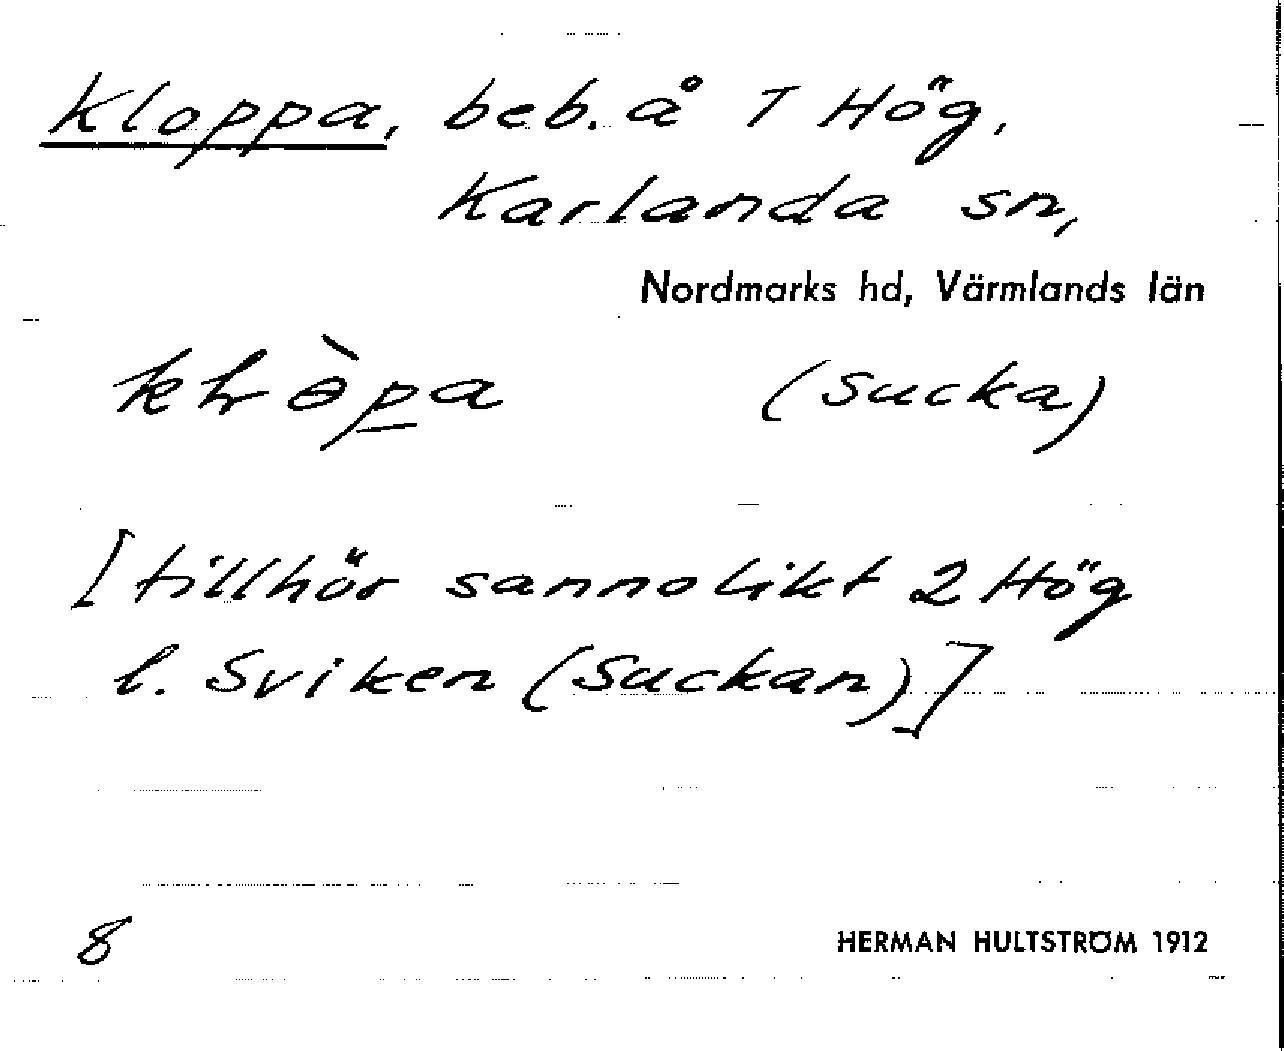 Kloppa, beb. å 1 Hög,
Karlanda sn,
Nordmarks hd, Värmlands län
(sucka)
[tillhör sannolikt 2 Hög
l. Sviken (Suckan)]
8
HERMAN HULTSTRÖM 1912